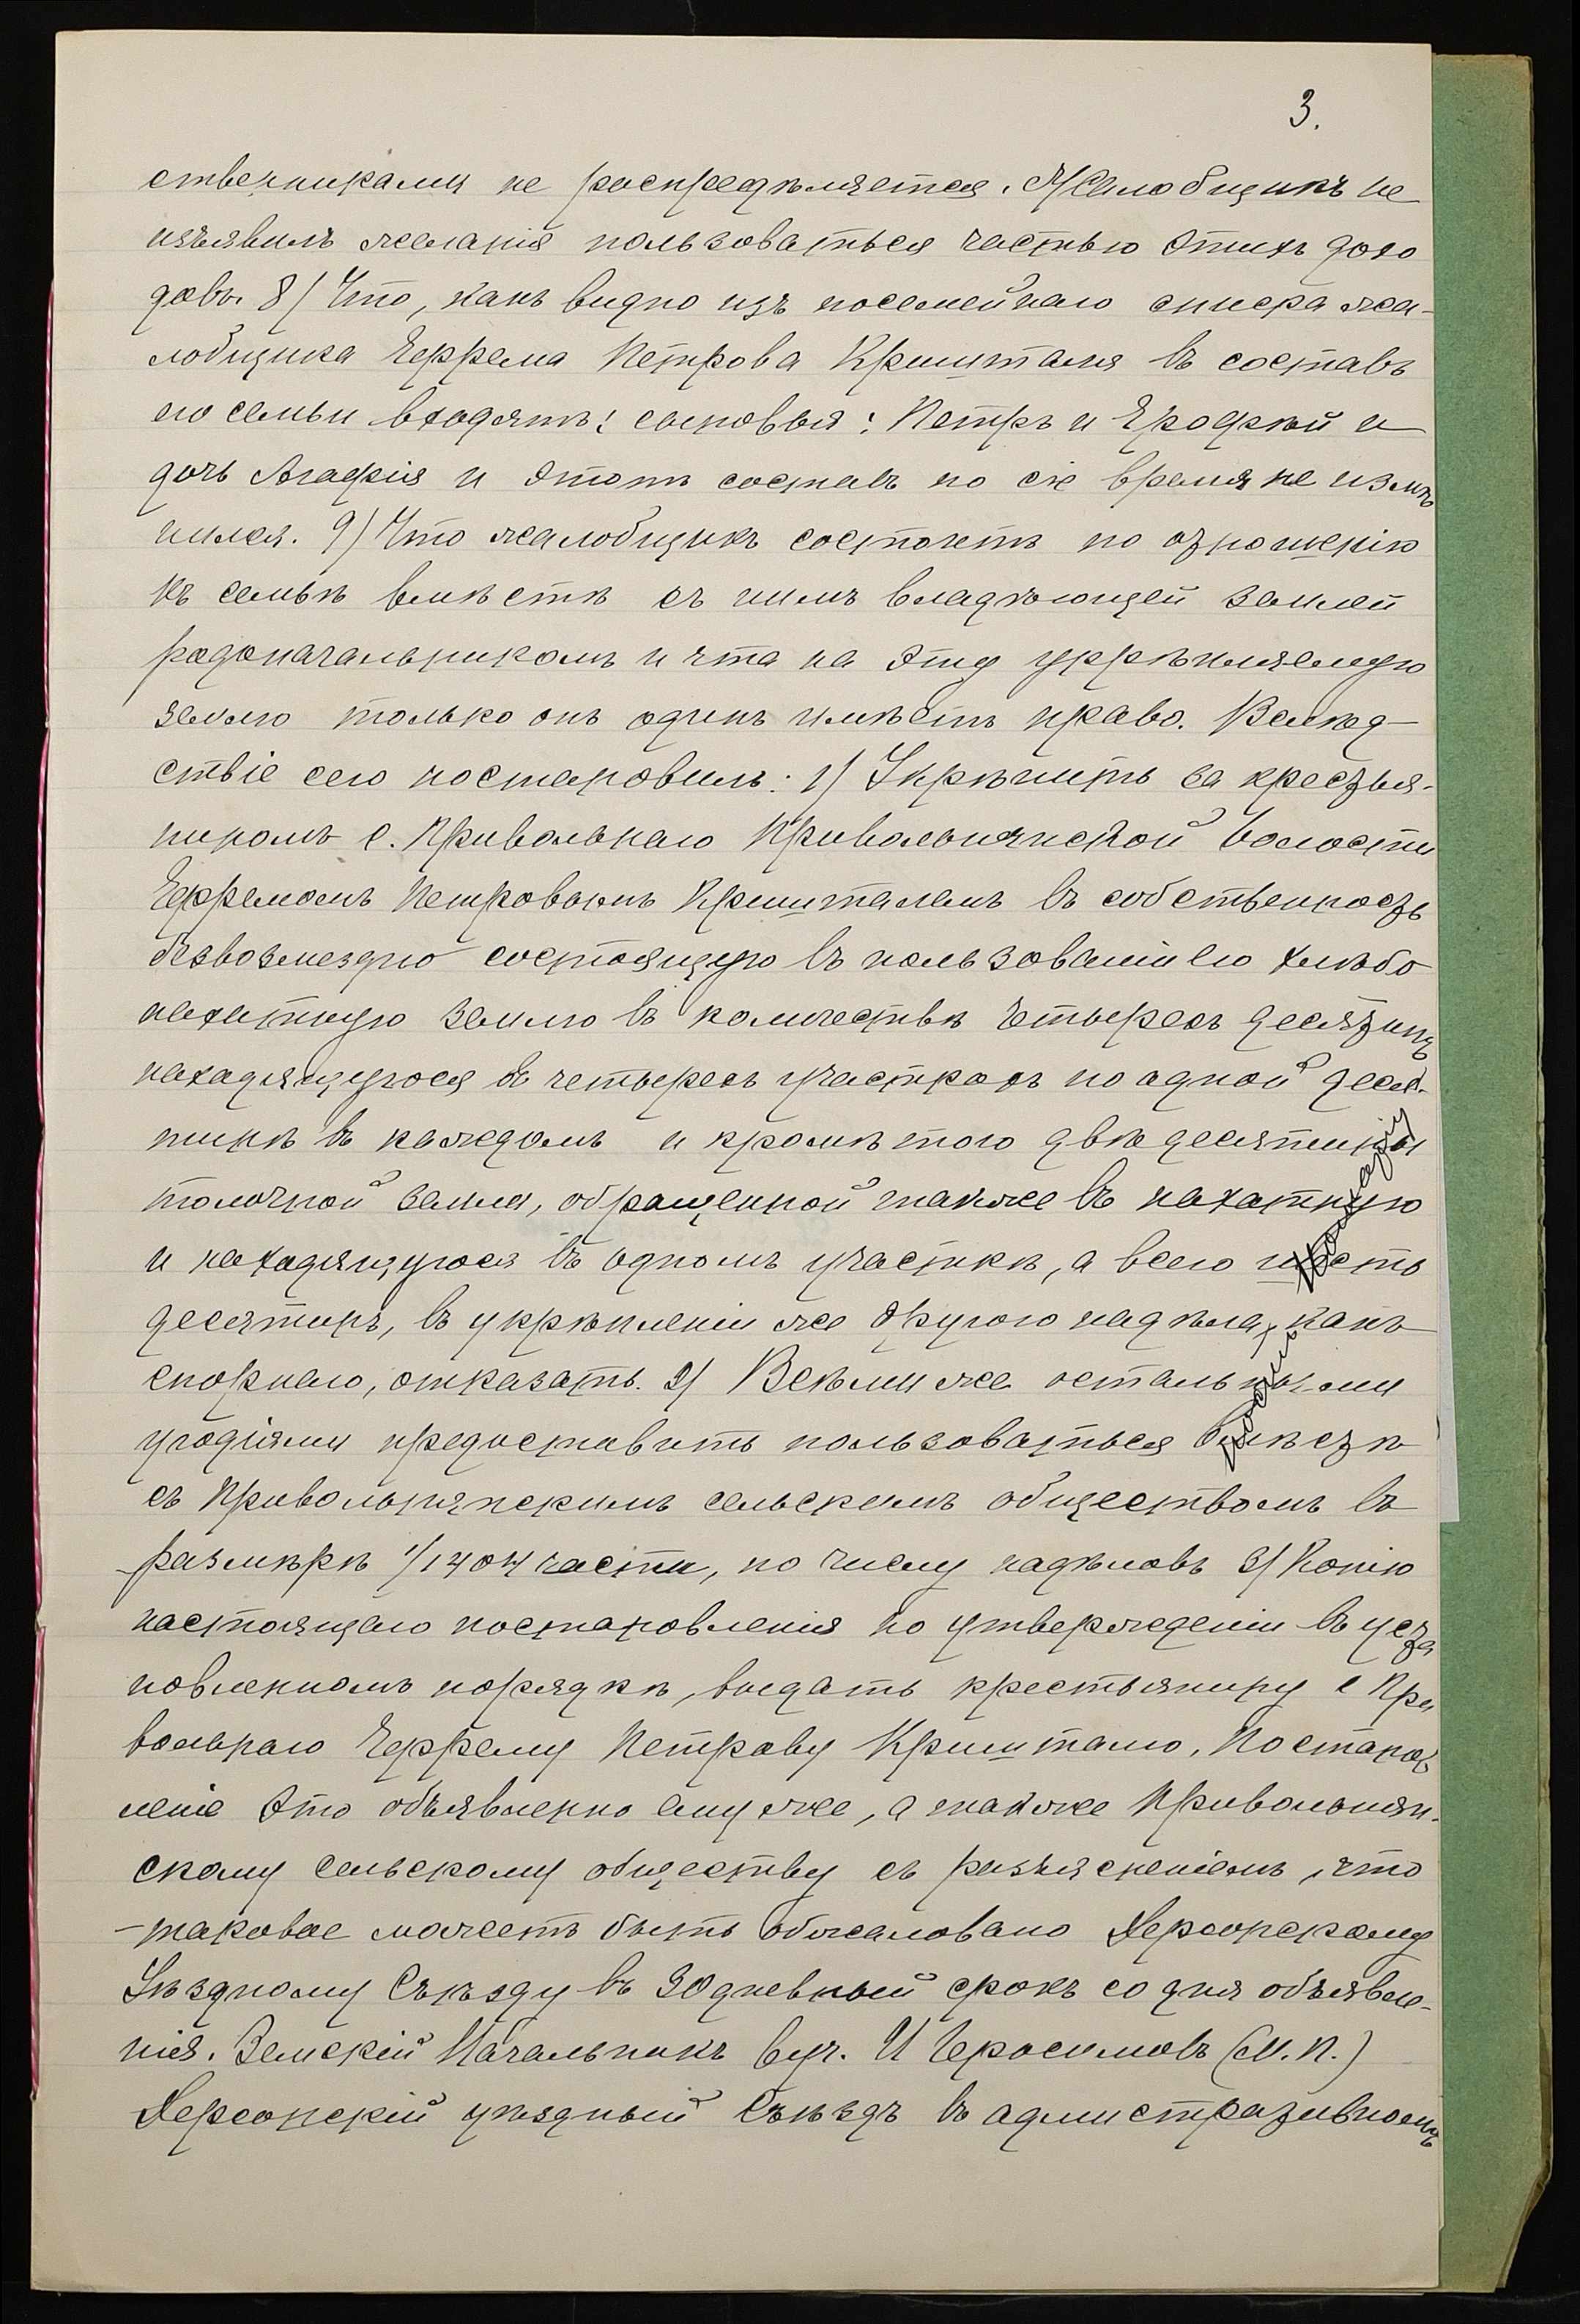 3.
ственниками не роспредѣляется. Жалобщикъ не
изъявилъ желанія пользоваться частью этихъ дохо
довъ. 8/ Что, какъ видно изъ посемейнаго списка жа-
лобщика Ефрема Петрова Кришталя въ составъ
его семьи входятъ: сыновья: Петръ и Ерофѣй и
дочь Агафія и этотъ составъ по сіе время не измѣ
нился. 9) Что жалобщикъ состоитъ по отношенію
къ семьѣ вмѣстѣ съ нимъ владѣющей землей
родоначальникомъ и что на эту укрѣпляемую
землю только онъ одинъ имѣетъ право. Вслѣд-
ствіе сего постановилъ: 1/ Укрѣпить за крестья-
ниномъ с. Привольнаго Привольнянской волости
Ефремомъ Петровымъ Кришталемъ въ собственность
безвозмездно состоящую въ пользованіи его хлѣбо
пахатную землю въ количествѣ четырехъ десятинъ
находящуюся въ четырехъ участкахъ по одной деся-
тинѣ въ каждомъ и кромѣ того двѣ десятины
толочной земли, обращенной также въ пахатную
и находящуюся въ одномъ участкѣ, а всего шесть
десятинъ, въ укрѣпленіи же другого надѣла, какъ
спорнаго, отказать. 2/ Всѣми же остальными
угодіями предоставить пользоваться вмѣстѣ
съ Привольнянскимъ сельскимъ обществомъ въ
размѣрѣ 1/1404 части, по числу надѣловъ 3/ Копію
настоящаго постановленія по утвержденіи въ уста
новленномъ порядкѣ, выдать крестьянину с При
вольнаго Ефрему Петрову Кришталю. Постанов
леніе это объявленно ему же, а также Привольнян-
скому сельскому обществу съ разъясненіемъ, что
таковое можетъ быть обжаловано Херсонскому
Уѣздному Съѣзду въ 30 дневный срокъ со дня объявле-
нія. Земскій Начальникъ 6 уч. И Черосимовъ (М. П.)
Херсонскій уѣздный Съѣздъ въ админстративномъ